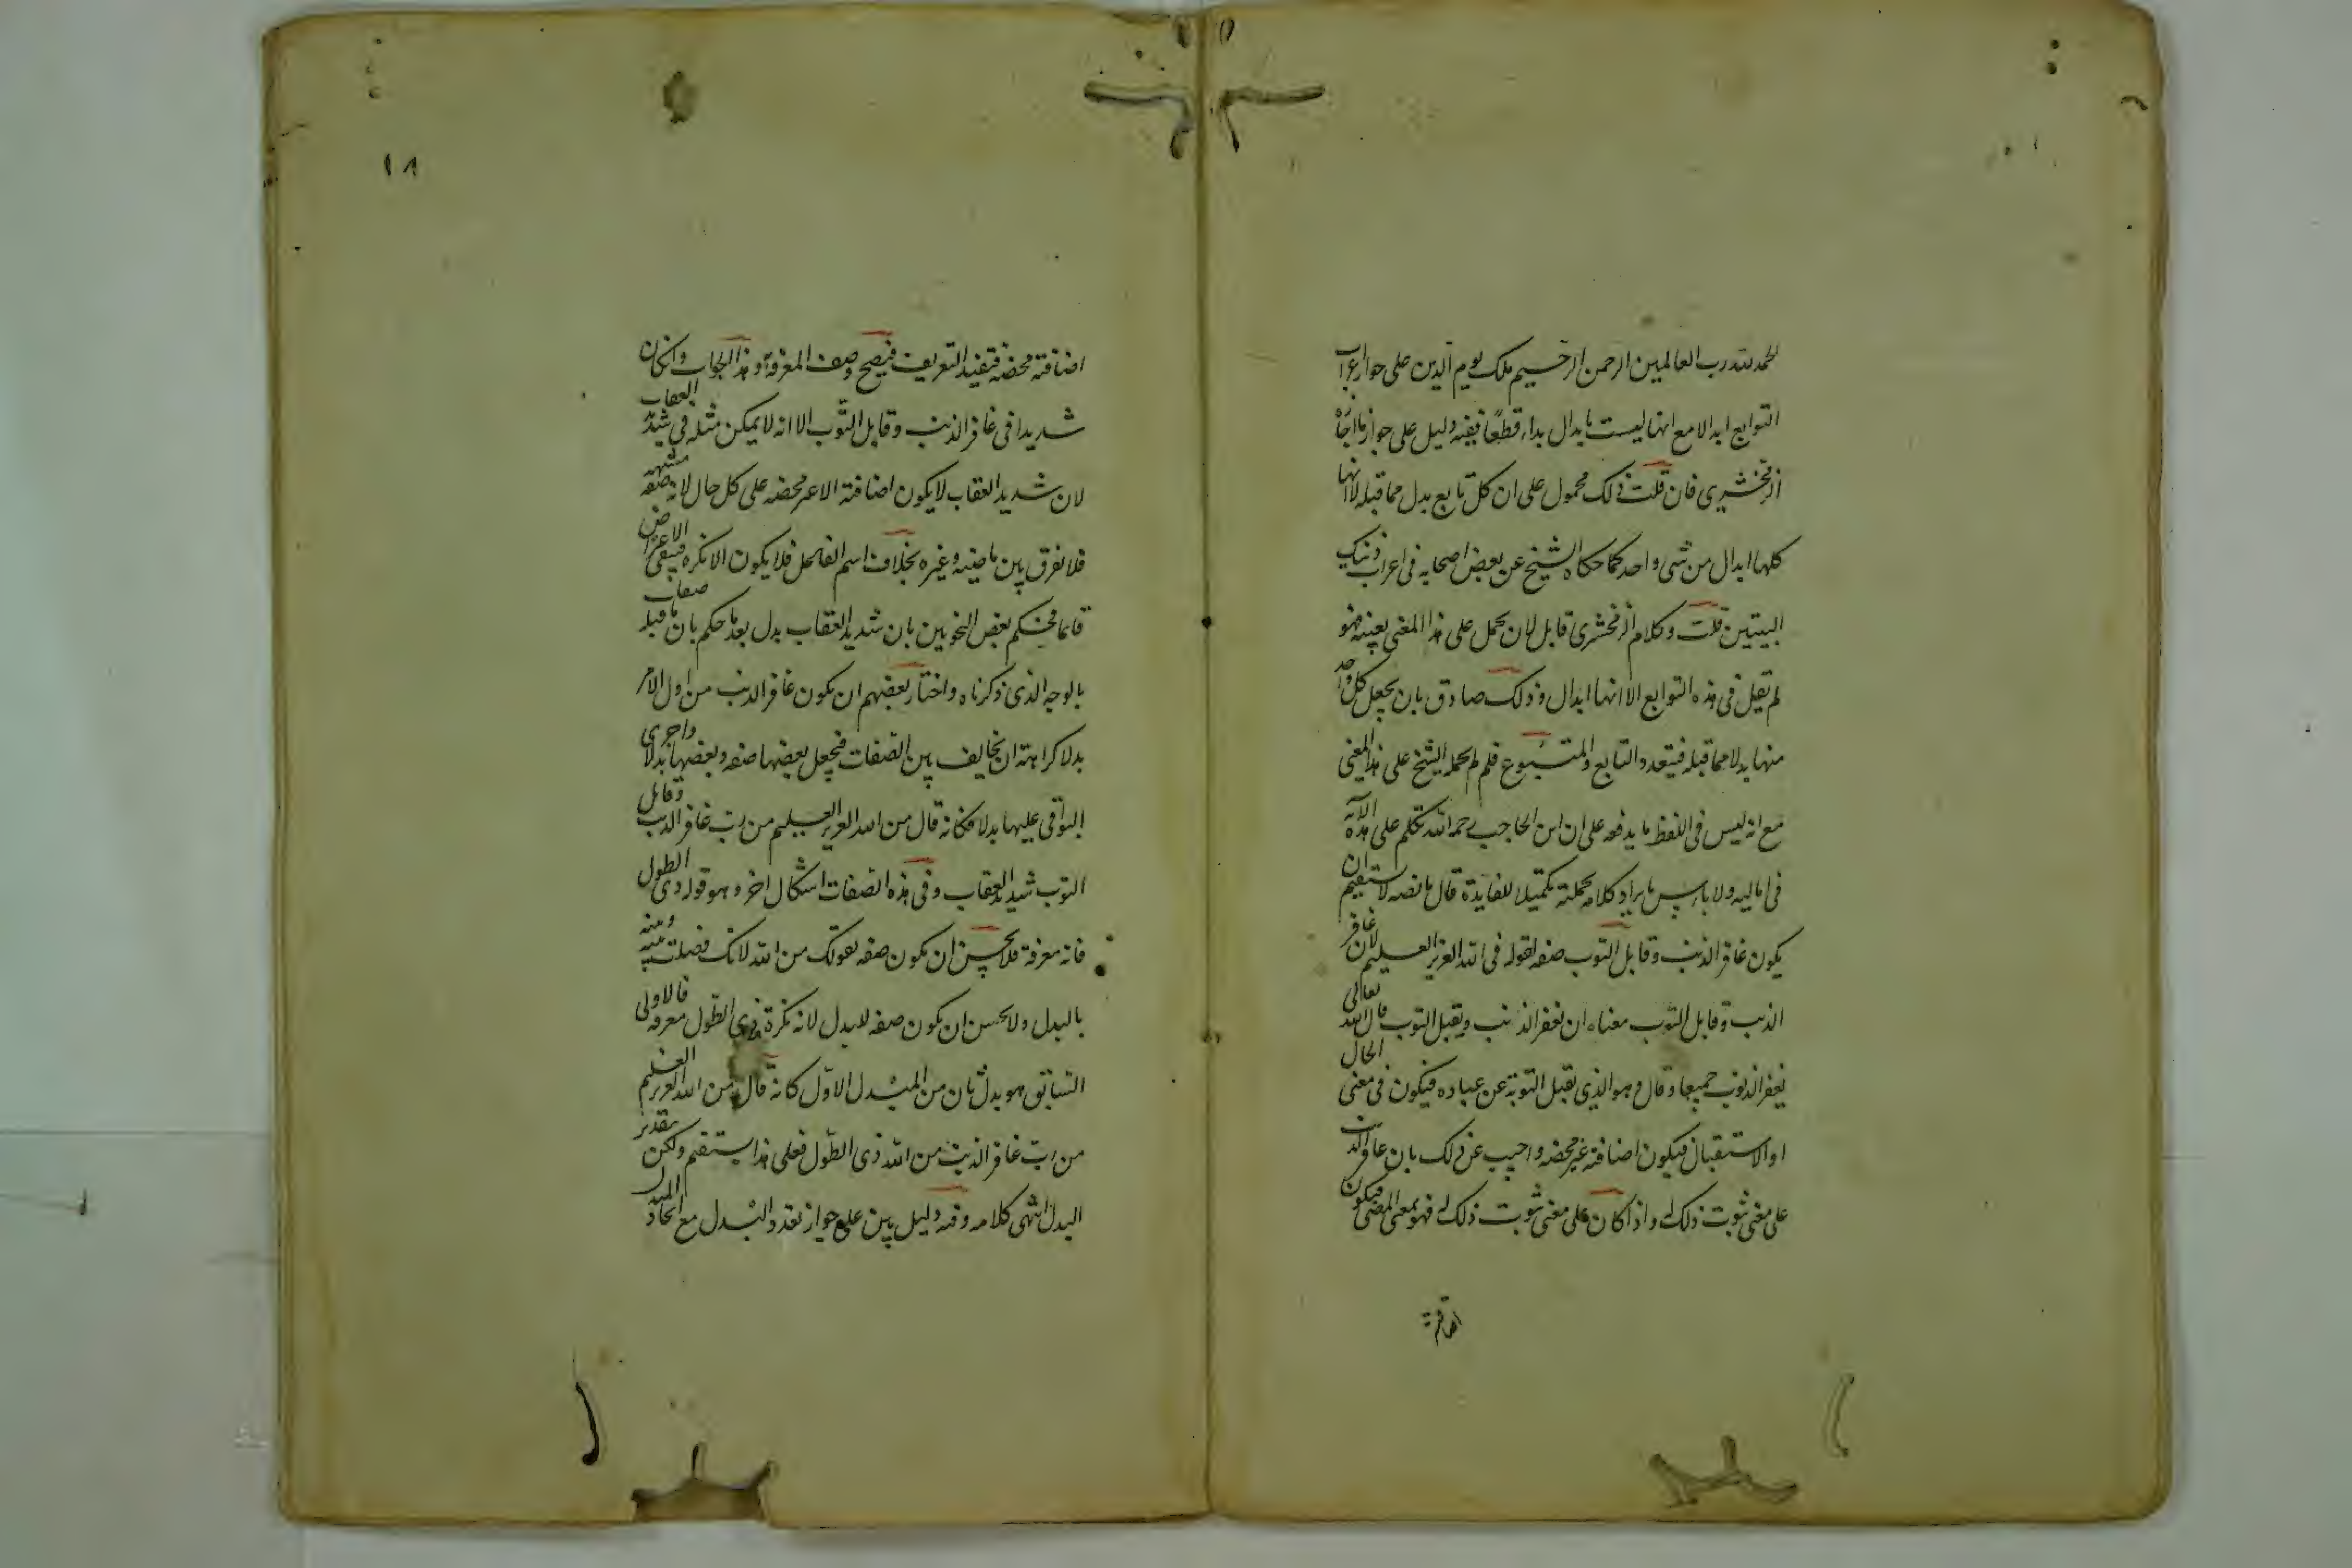 الحمد لله رب العالمين الرحمن الرحيم ملك يوم الدين على جواز اعراب
التوابع ابدالا مع انها ليست بابدال بداء قطعًا ففيه دليل على جواز ما اجازه
الزمخشري فان قلت ذلك محمول على ان كل تابع بدل مما قبله لا انها
كلها ابدال من شى واحد كما حكاه الشيخ عن بعض اصحابه فى اعراب ذينك
البيتين قلت وكلام الزمخشرى قابل لان يحمل على هذا المعنى بعينه فهو
لم يقل فى هذه التوابع الا انها ابدال وذلك صادق بان يجعل كل واحد
منها بدلا مما قبله فيتعدد التابع والمتبوع فلم لم يحمله الشيخ على هذا المعنى
مع انه ليس فى اللفظ ما يدفعه على ان ابن الحاجب رحمه الله تكلم على هذه الآية
فى اماليه ولا باس بايراد كلامه بجملته تكميلا للفايدة قال ما نصه لا يستقيم ان
يكون غافر الذنب وقابل التوب صفة لقوله فى الله العزيز العليم لان غافر
الذنب وقابل التوب معناه ان يغفر الذنب ويقبل التوب قال الله تعالى
يغفر الذنوب جميعا وقال وهو الذى يقبل التوبة عن عباده فيكون فى معنى الحال
او الاستقبال فيكون اضافته غير محضه واجيب عن ذلك بان غافر الذنب
على معنى ثبوت ذلك له واذا كان على معنى ثبوت ذلك له فهو بمعنى المضى فيكون
اضافته
١٨
اضافته محضه فتفيد التعريف فيصح وصف المعرفة وهذا الجواب وان كان
شديدا فى غافر الذنب وقابل التوب الا انه لا يمكن مثله فى شديد العقاب
لان شديد العقاب لا يكون اضافته الا غير محضه على كل حال لانه صفة مشبهه
فلا نفرق بين ماضيه وغيره بخلاف اسم الفاعل فلا يكون الا نكره فيبقى الاعتراض
قائما فحكم بعض النحويين بان شديد العقاب بدل بعد ما حكم بان ما قبله صفات
بالوجه الذى ذكرناه واختار بعضهم ان يكون غافر الذنب من اول الامر
بدلا كراهة ان يخالف بين الصفات فيجعل بعضها صفه وبعضها بدلا واجرى
البواقى عليها بدلا فكانه قال من الله العزيز العليم من رب غافر الذنب وقابل
التوب شديد العقاب وفى هذه الصفات اشكال اخر وهو قوله ذى الطول
فانه معرفة فلا يحسن ان يكون صفه لقولك من الله لانك فصلت بينه وبينه
بالبدل ولا يحسن ان يكون صفه للبدل لانه نكرة وذى الطول معرفه فالاولى
ان هو بدل ثان من المبدل الاول كانه قال من الله العزيز العليم
من رب غافر الذنب من الله ذى الطول فعلى هذا يستقيم ولكن بتقدير
البدل انتهى كلامه وفيه دليل بين على جواز تعدد البدل مع اتحاد المبدل